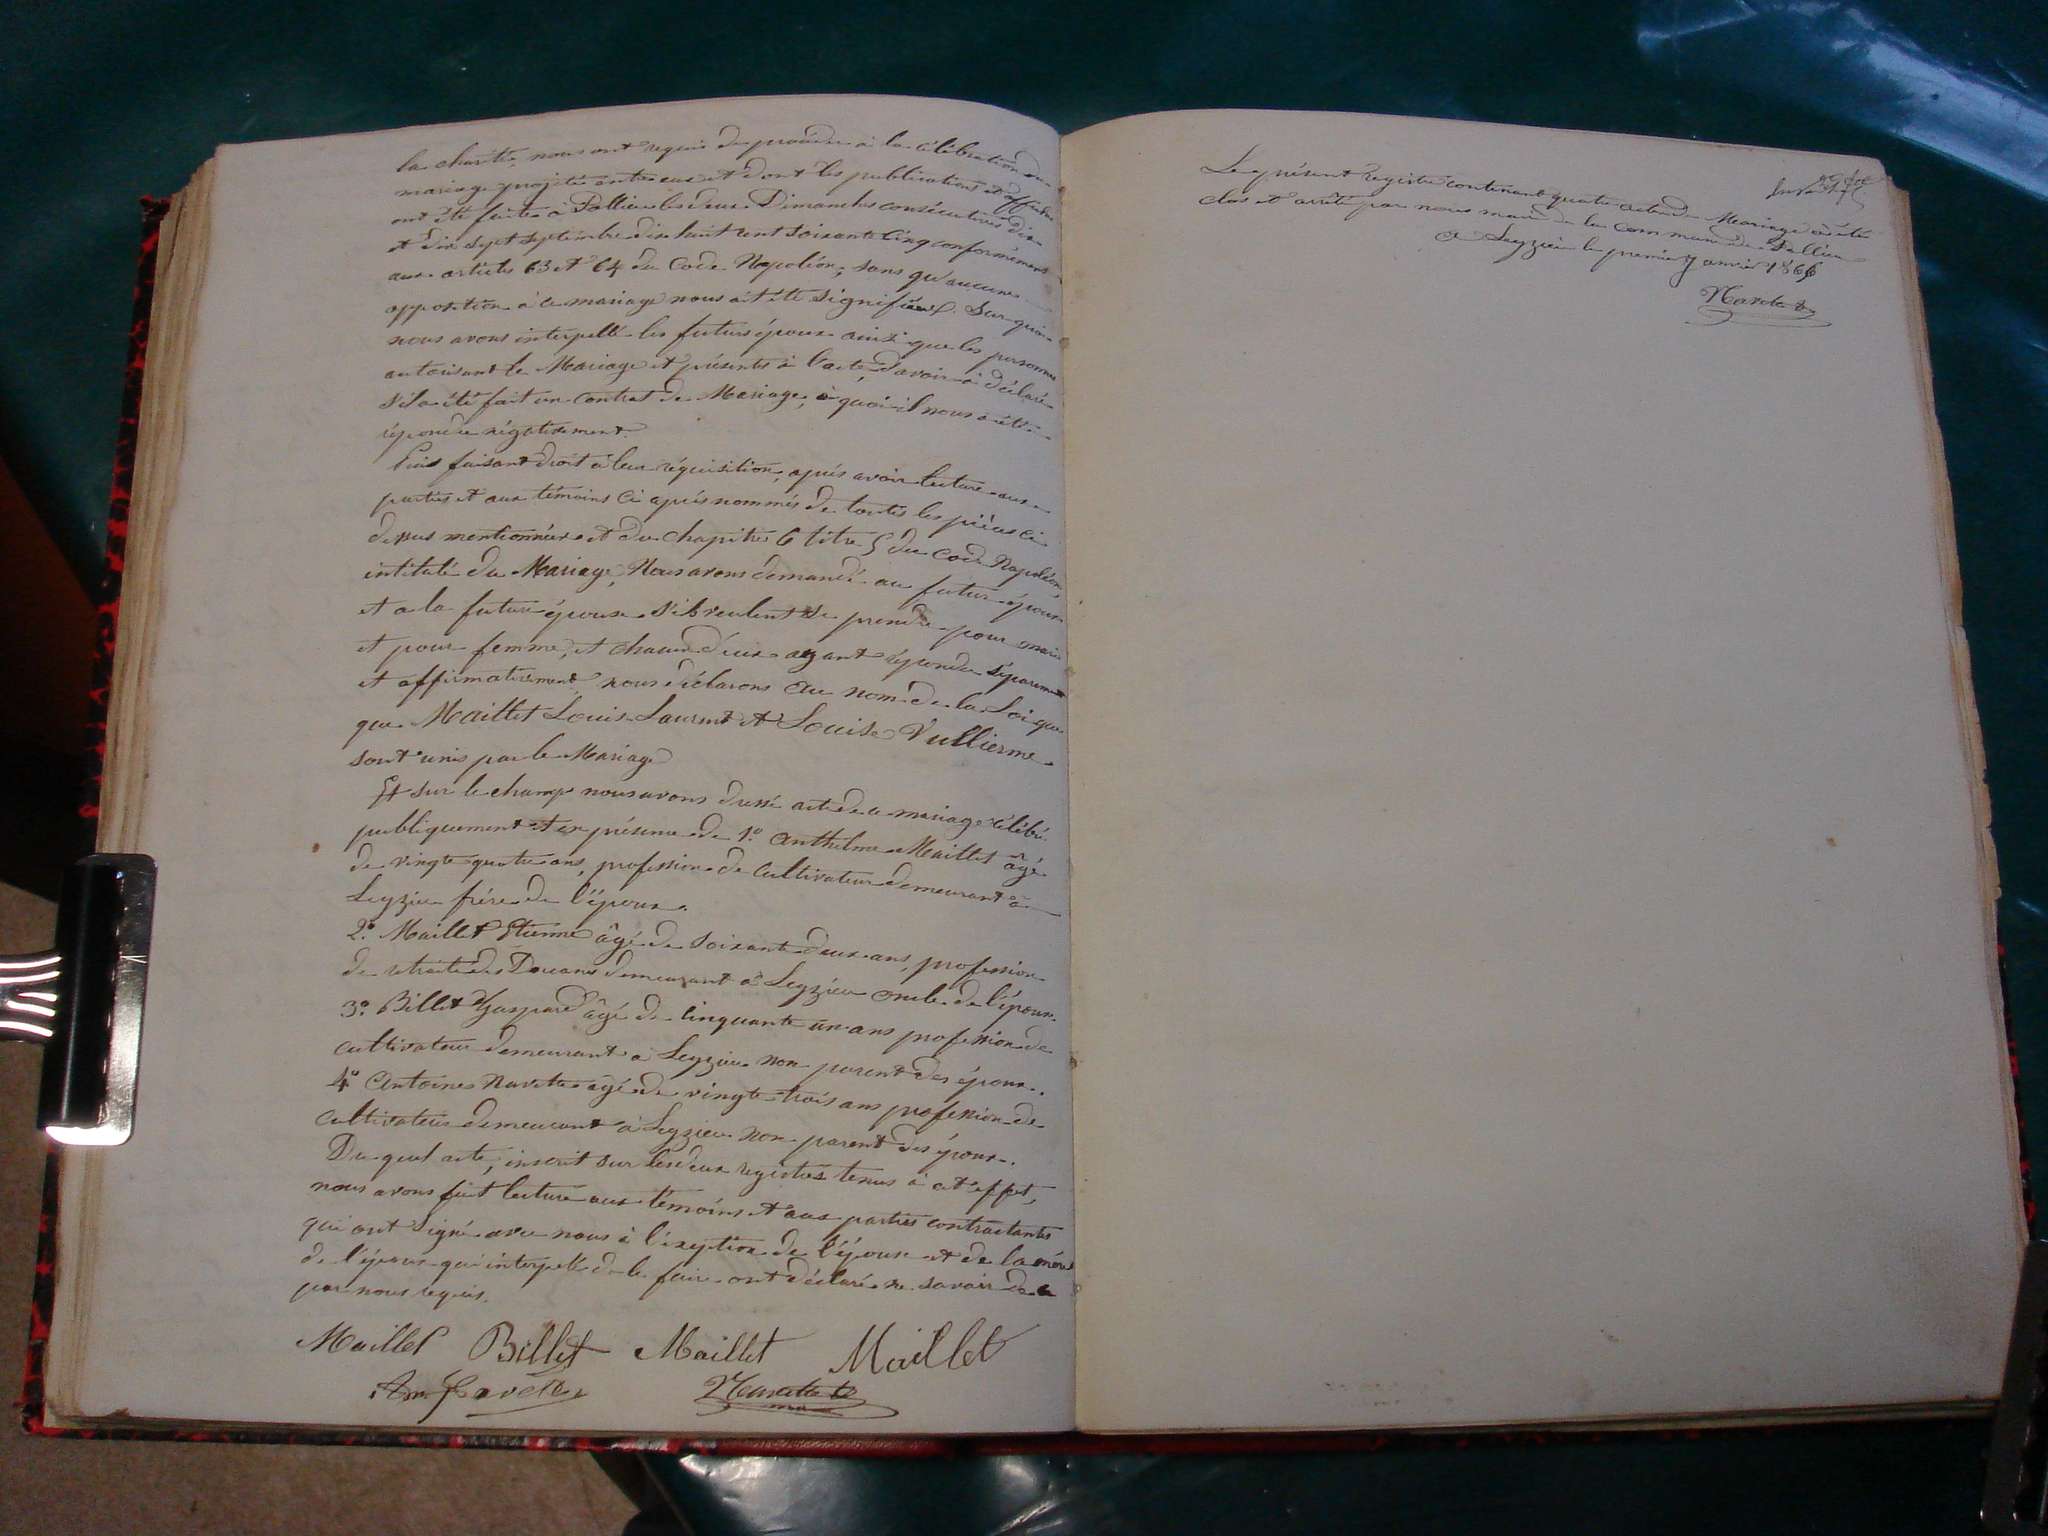 la charité, nous ont requis de procéder à la célébration du
mariage projeté entre eux et dont les publications et affiches
ont été faites à Pollieu les deux Dimanches consécutives dix
et dix sept septembre dix huit cent soixante cinq conformément
aux articles 63 et 64 du Code Napoléon, sans qu'aucune
opposition à ce mariage nous ait été signifiée. Sur quoi
nous avons interpellé les futurs époux ainsi que les personnes
autorisant le Mariage et présents à l'acte, d'avoir à déclaré
s'il a été fait un contrat de Mariage, à quoi il nous a été
répondu négativement.
Puis faisant droit à leur réquisition, après avoir lecture aux
parties et aux témoins ci après nommés de toutes les pièces ci
dessus mentionnées et du chapitre 6 titre 5 du Code Napoléon,
intitulé du Mariage, Nous avons demandé au futur époux
et a la future épouse s'ils veulent se prendre pour mari
et pour femme, et chacun d'eux ayant répondu séparement
et affirmativement, nous déclarons au nom de la Loi que
que Maillet Louis Laurent et Louise Vullierme
sont unis par le Mariage
Et sur le champ nous avons dressé acte de ce mariage célébré
publiquement et en présence de 1º Anthelme Maillet âgé
de vingte quatre ans, profession de Cultivateur demeurant à
Leyzieu frère de l'époux.
2º Maillet Etienne âgé de soixante deux ans, profession
de retraité des Douanes demeurant à Leyzieu oncle de l'époux.
3º Billet Gaspard âgé de cinquante un ans profession de
cultivateur demeurant à Leyzieu non parent des époux.
4º Antoine Navette âgé de vingte trois ans profession de
cultivateur demeurant à Leyzieu non parent des époux.
Du quel acte, inscrit sur les deux registres tenus à cet effet,
nous avons fait lecture aux témoins et aux parties contractantes
qui ont signé avec nous à l'exeption de l'épouse et de la mère
de l'époux qui interpelés de le faire ont déclaré ne savoir de ce
par nous requis.
Maillet Billet Maillet Maillet
Ane Navette Navette
Le présent registre contenant quatre actes de Mariage à été
clos et arrêté par nous maire de la commune de Pollieu
à Leyzieu le premier Janvier 1866
Navette